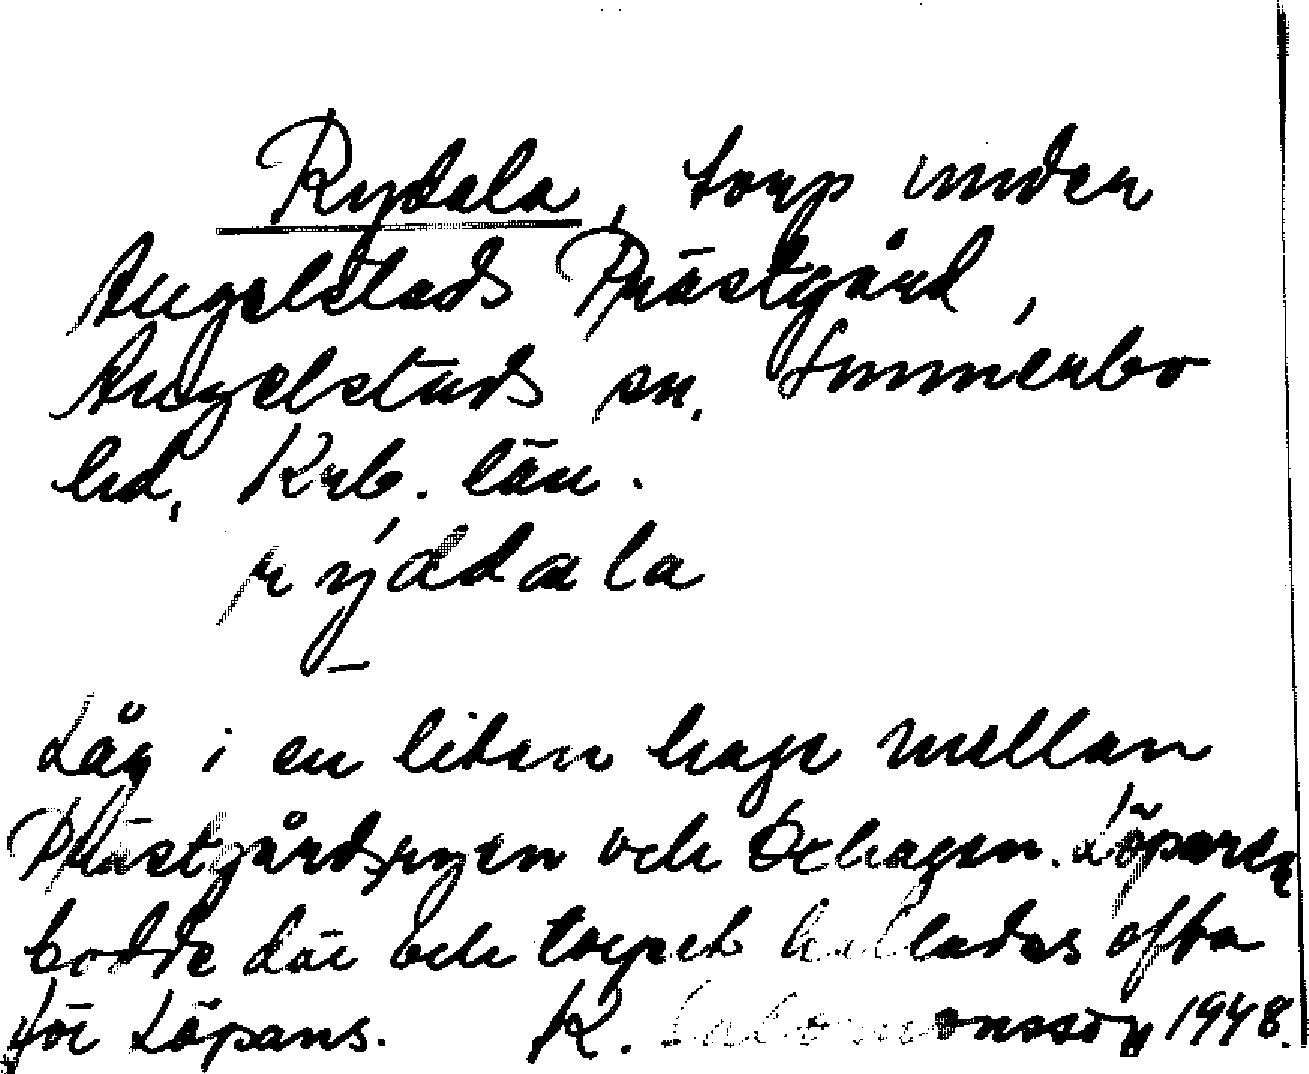 Rydala, torp under
Angelstads Prästgård,
Angelstads sn. Sunnerbo
hd. Krb. län.
rýddala
Låg i en liten hage mellan
Prästgårdsryen och Oxhagen. Löparen
bodde där och torpet kallades ofta
för Löpans. K. Salomonsson 1948.